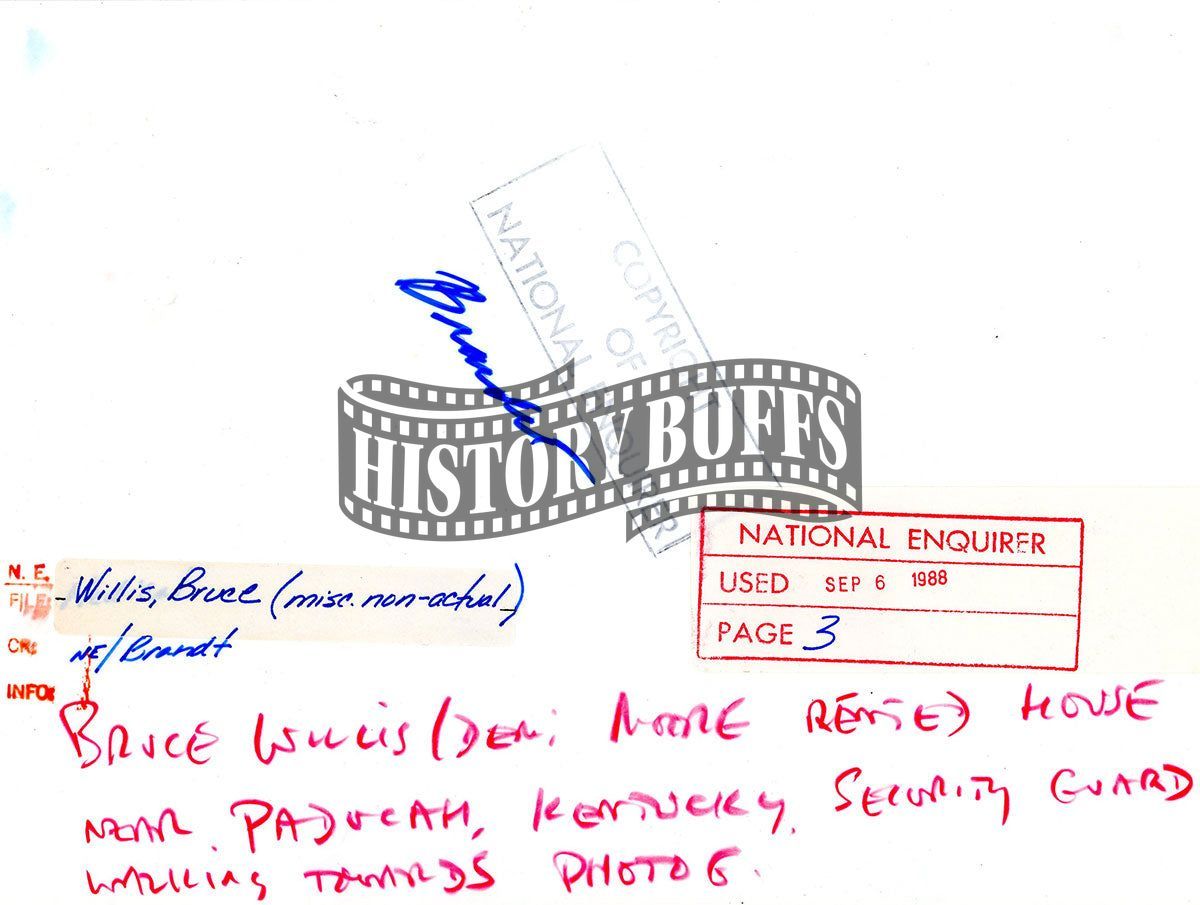 COPYRIGHT
OF
NATIONAL ENQUIRER
Brandt
HISTORY BUFFS
NATIONAL ENQUIRER
USED SEP 6 1988
PAGE 3
N. E.
FILE: Willis, Bruce (misc. non-actual)
CR: NE/Brandt
INFO:
BRUCE WILLIS (DEMI MOORE RENTED) HOUSE
NEAR PADUCAH, KENTUCKY. SECURITY GUARD
WALKING TOWARDS PHOTOG.